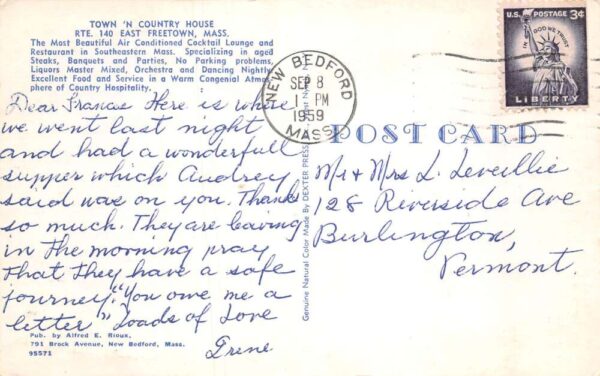 TOWN 'N COUNTRY HOUSE
RTE. 140 EAST FREETOWN, MASS.
The Most Beautiful Air Conditioned Cocktail Lounge and
Restaurant in Southeastern Mass. Specializing in aged
Steaks, Banquets and Parties, No Parking problems,
Liquors Master Mixed, Orchestra and Dancing Nightly
Excellent Food and Service in a Warm Congenial Atmos-
phere of Country Hospitality.
Dear Frances Here is where
we went last night
and had a wonderfull
supper which Audrey
said was on you. Thanks
so much. They are leaving
in the morning pray
that they have a safe
journey. "You owe me a
letter" Loads of Love
Irene
Pub. by Alfred E. Rioux,
791 Brock Avenue, New Bedford, Mass.
98571
Genuine Natural Color Made By DEXTER PRESS
NEW BEDFORD
SEP 8
PM
1959
MASS
U.S. POSTAGE 3¢
IN GOD WE TRUST
LIBERTY
POST CARD
Mr & Mrs L. Leveillie
128 Riverside Ave
Burlington,
Vermont.